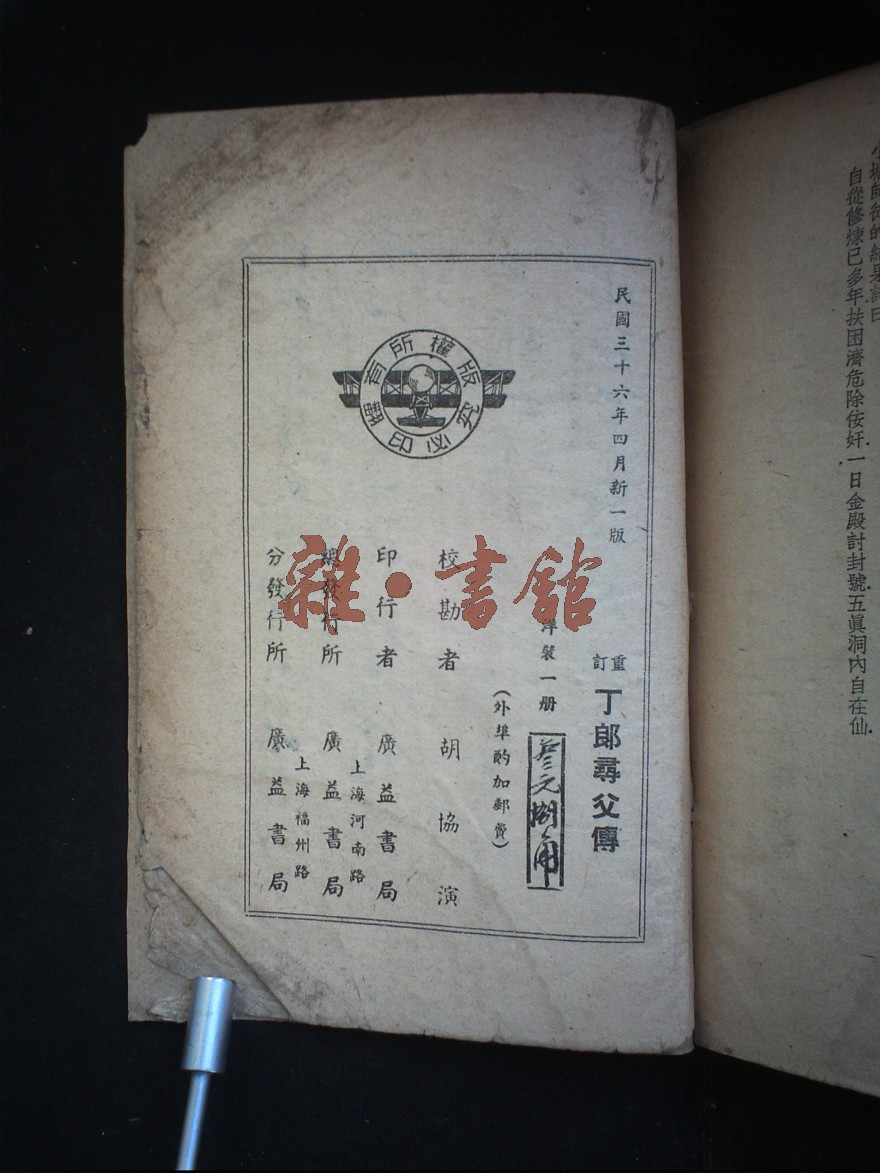 小城師徒的結果詩曰
自從修煉已多年扶困濟危除佞奸一日金殿討封號五眞洞內自在仙
民國三十六年四月新一版
重訂
丁郎尋父傳
洋裝一册
叁元捌角
(外埠酌加郵費)
校勘者 胡協演
印行者 廣益書局
上海河南路
總發行所 廣益書局
上海福州路
分發行所 廣益書局
版權所有
翻印必究
雜·書館